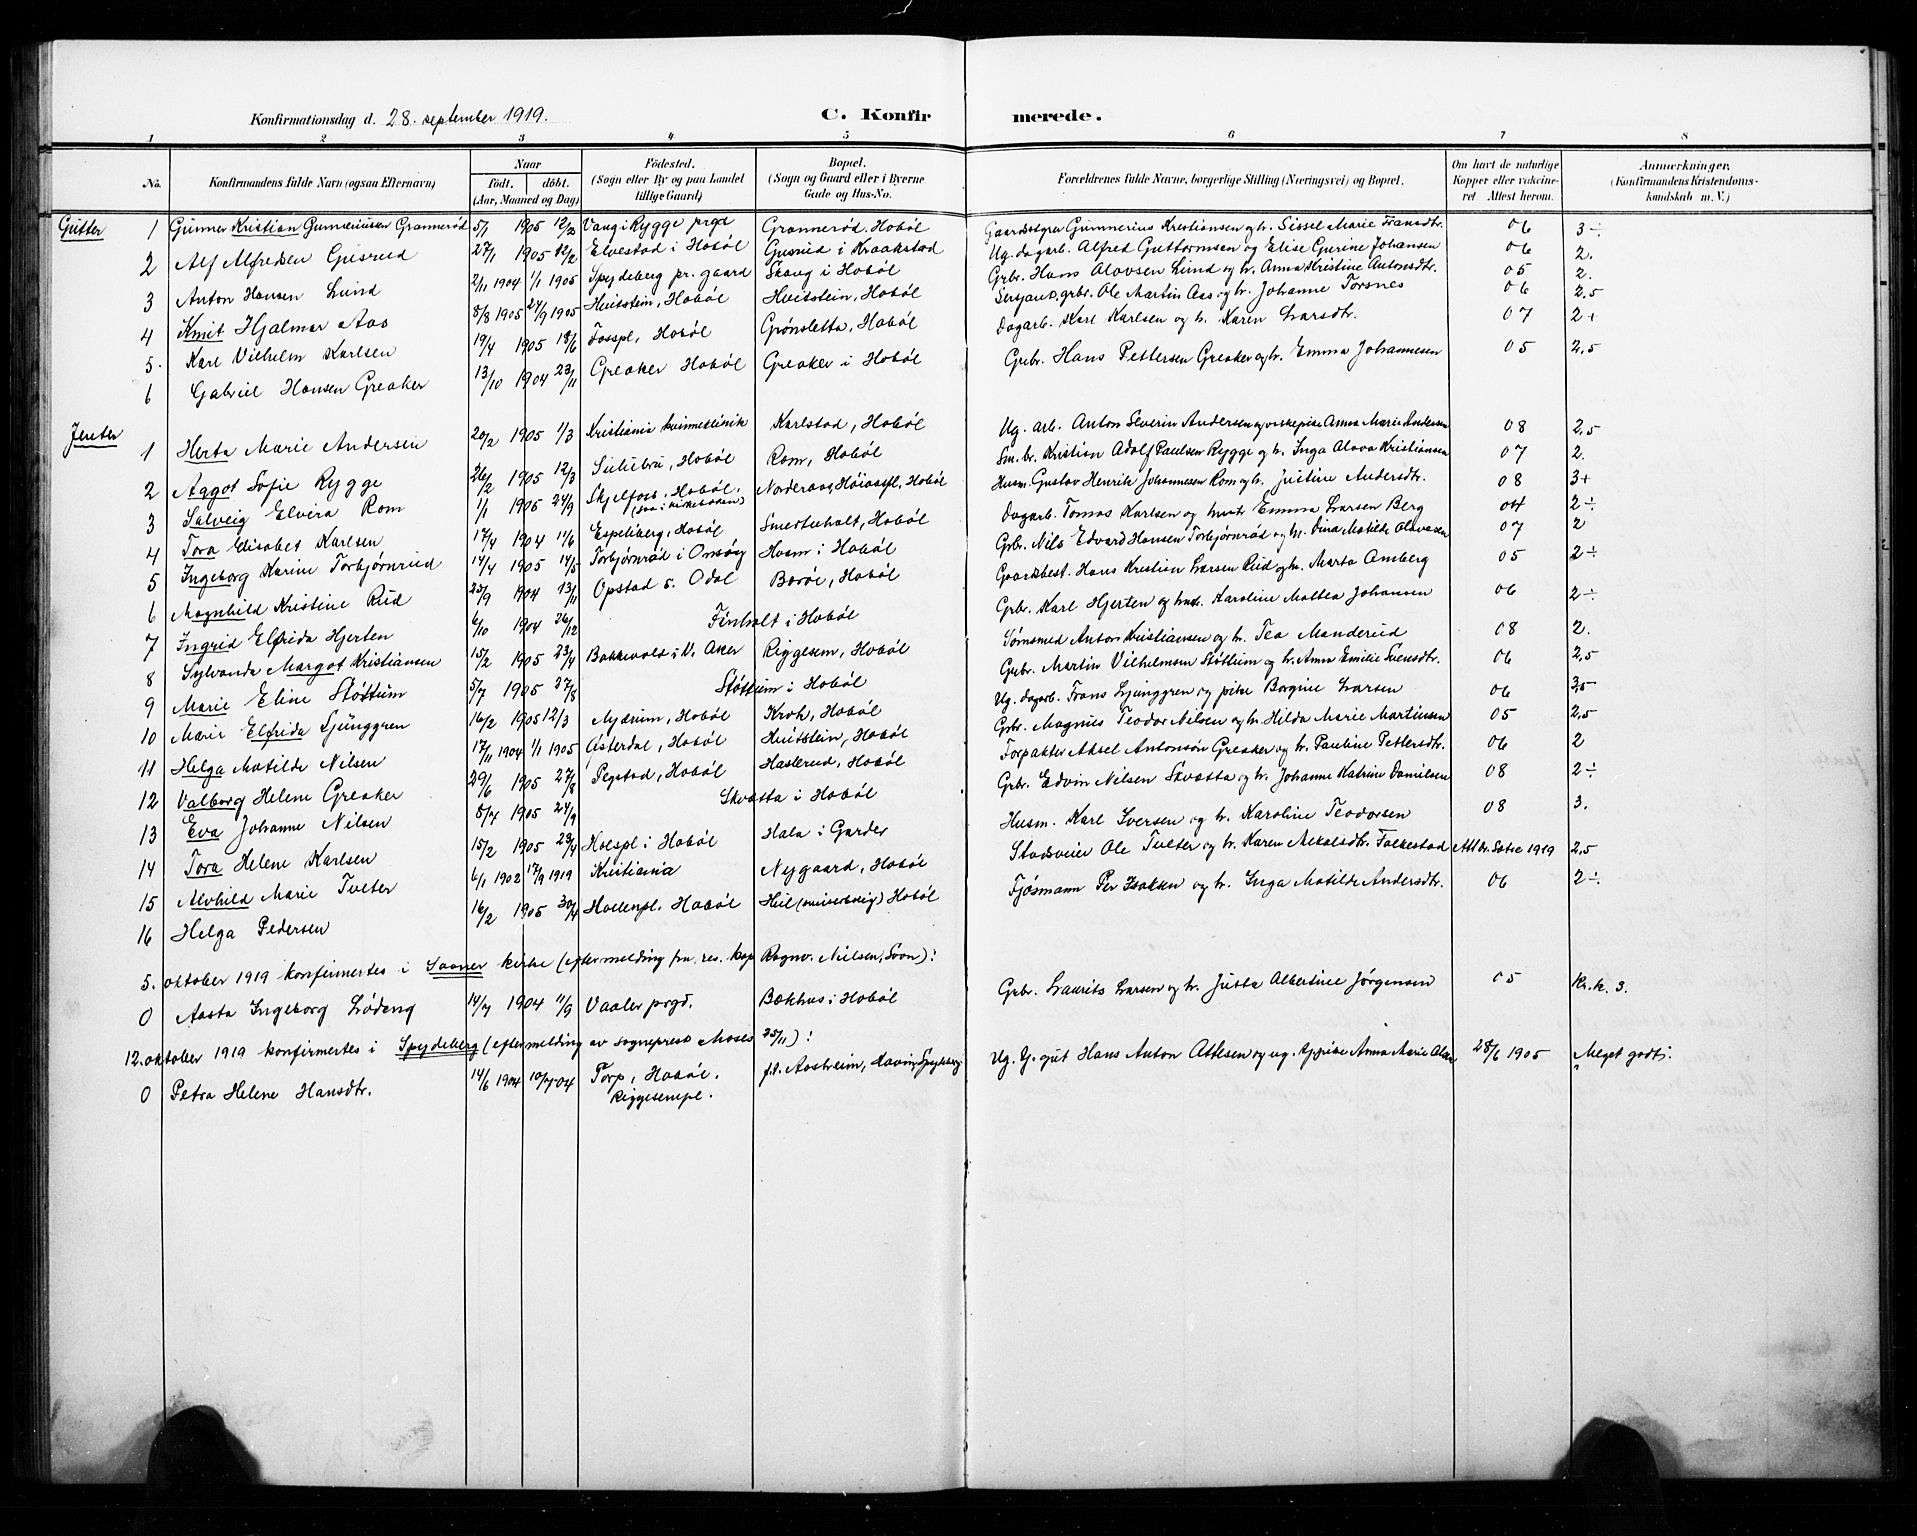 Konfirmationsdag d. 28. september 1919. C. Konfirmerede.
1 2 3 4 5 6 7 8
No. Konfirmandens fulde Navn (ogsaa Efternavn) Naar födt. döbt. (Aar, Maaned og Dag) Födested. (Sogn eller By og paa Landet tillige Gaard) Bopæl. (Sogn og Gaard eller i Byerne Gade og Hus-No. Forældrenes fulde Navne, borgerlige Stilling (Næringsvei) og Bopæl. Om havt de naturlige Kopper eller vaccineret. Attest herom. Anmerkninger. (Konfirmandens Kristendomskundskab m. V.)
Gutter 1 Gunnar Kristian Gunneriusen Grannerød 5/1 1905 12/3 Vang i Rygge prgd Grannerød, Hobøl Gaardsstyrer Gunnerius Kristiansen og h. Sissel Marie Fransdtr. 06 3÷
2 Alf Alfredsen Gusrud 27/1 1905 12/2 Elvestad i Hobøl Gusrud i Kraakstad Ug. dagarb. Alfred Guttormsen og Elise Gurine Johansen 06 2.
3 Anton Hansen Lund 2/11 1904 1/1 1905 Spydeberg pr. gaard Skaug i Hobøl Grbr. Hans Olavsen Lund og h. Anna Kristine Antonsdtr. 05 2.
4 Knut Hjalmar Aas 8/8 1905 24/9 1905 Hvitstein, Hobøl Hvitstein, Hobøl Sersjant, grbr. Ole Martin Aas og h. Johanne Torsnes 06 2,5
5. Karl Vilhelm Karlsen 19/4 1905 18/6 Fosspl, Hobøl Grønsletta, Hobøl Dagarb. Karl Karlsen og h. Karen Larsdtr. 07 2+
6 Gabriel Hansen Greaker 13/10 1904 23/11 Greaker Hobøl Greaker i Hobøl Grbr. Hans Pettersen Greaker og h. Emma Johannesen 05 2,5
Jenter 1 Herta Marie Andersen 20/2 1905 1/3 Kristiania kvinneklinik Karlstad, Hobøl Ug. arb. Anton Severin Andersen og Anna Marie Andersen 08 2,5
2 Aagot Sofie Rygge 26/2 1905 12/3 Hobøl Rom, Hobøl Sm. br. Kristian Adolf Paulsen Rygge og h. Inga Olava Kristiansen 07 2.
3 Solveig Elvira Rom 1/1 1905 24/9 Skjelfoss, Hobøl. (saa i kirkeboken) Norderaas, Hobøl Husm. Gustav Henrik Johannesen Rom og h. Justine Andersdtr. 08 3+
4 Tora Elisabet Karlsen 17/4 1904 11/6 Espeliberg, Hobøl Smertuholt, Hobøl Dagarb. Tomas Karlsen og Emma Larsen Berg 04 2÷
5 Ingeborg Karine Torbjørnrud 14/4 1905 14/5 Torbjørnrød i Onsøy Husm i Hobøl Grbr. Nils Edvard Hansen Torbjørnrød og h. Dina Matilde Olavesen 07 2
6 Magnhild Kristine Rud 25/9 1904 13/11 Opstad s. Odal Borøe, Hobøl Gaardsbest. Hans Kristian Larsen Rud og h. Marta Amberg 05 2÷
7 Ingrid Elfrida Hjerten 6/10 1904 26/12 Finholt i Hobøl Grbr. Karl Hjerten og Karoline Mattea Johansen 06 2÷
8 Sylvanda Margot Kristiansen 15/2 1905 23/4 Bakkevold i V. Aker Riggesem, Hobøl Sømsmed Anton Kristiansen og h. Tea Manderud 08 2.
9 Marie Eline Støttum 5/7 1905 27/8 Støttum i Hobøl Grbr. Martin Vilhelmsen Støttum og h. Anna Emilie Svensdtr. 06 2,5
10 Marie Elfrida Ljunggren 16/2 1905 12/3 Mydrum, Hobøl Krok, Hobøl Ug. dagarb. Frans Ljunggren og pike Borgine Larsen 06 3,5
11 Helga Matilde Nilsen 17/11 1904 1/1 1905 Asterdal, Hobøl Hvitstein, Hobøl Grbr. Magnus Teodor Nilsen og h. Hilda Marie Martinsen 05 2,5
12 Valborg Helene Greaker 29/6 1905 27/8 Pegstad, Hobøl Haslerud, Hobøl Forpakter Aksel Antonsøn Greaker og h. Pauline Pettersdtr. 06 2
13 Eva Johanne Nilsen 8/7 1905 24/9 Skvatta i Hobøl Grbr. Edvin Nilsen Skvatta og h. Johanne Katrine Danielsen 08 2÷
14 Tora Helene Karlsen 15/2 1905 23/4 Hoespl i Hobøl Hala i Garder Husm. Karl Iversen og h. Karoline Teodorsen 08 3.
15 Alvhild Marie Tveter 6/1 1902 17/9 1919 Kristiania Nygaard, Hobøl Stadsveier Ole Tveter og h. Karen Falkestad Att dr. Sotre 1919 2,5
16 Helga Pedersen 16/2 1905 30/4 Hoelenpl. Hobøl Hobøl Fjøsmann Per Isaksen og h. Inga Matilde Andersdtr. 06 2÷
5. oktober 1919 konfirmertes i Saaner kirke (efter melding fra res. kap Ragnv. Nilsen, Soon):
0 Aasta Ingeborg Lødeng 14/7 1904 11/9 Vaaler prgd. Bækhus i Hobøl Grbr. Laurits Larsen og h. Justa Albertine Jørgensen 05 Kr.k. 3.
12. oktober 1919 konfirmertes i Spydeberg (efter melding av sogneprest Moses 25/11):
0 Petra Helene Hansdtr. 14/6 1904 10/7 04 Torp, Hobøl. Riggesempl. f.t. Aastreim, Spydeberg Ug. G. gut Hans Anton Attesen og ug. Anna Marie 28/6 1905 Meget godt.